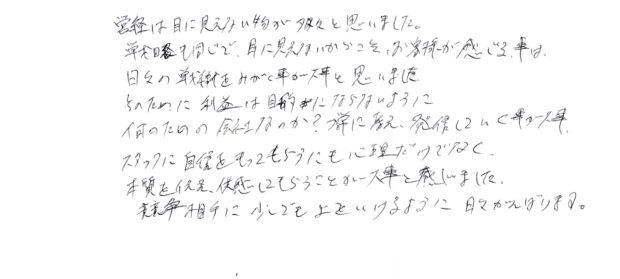 営経は目に見えない物が多々と思いました。
戦略も同じで、目に見えないからこそ、お客様が感じる事は、
日々の戦術をみがく事が大事と思いました
そのために利益は目的にならないように
何のための会社なのか？常に考え、発信していく事が大事。
スタッフに自信をもってもらうにも心理だけでなく、
本質を伝え、共感してもらうことが大事と感じました。
競争相手に少しでも上をいけるように日々がんばります。